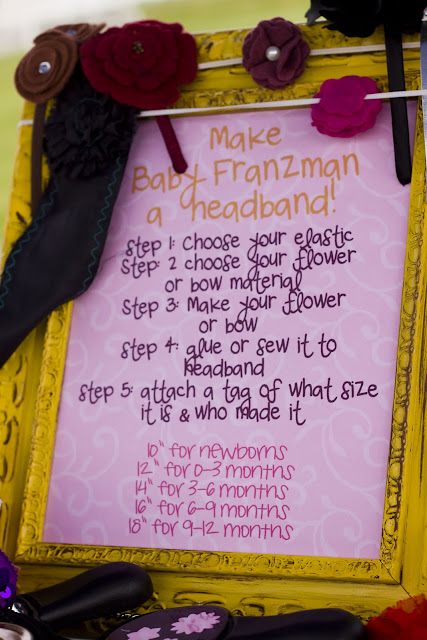 Make
Baby Franzman
a headband!
Step 1: Choose your elastic
Step: 2 choose your flower
or bow material
Step 3: Make your flower
or bow
Step 4: glue or sew it to
headband
Step 5: attach a tag of what size
it is & who made it
10" for newborns
12" for 0-3 months
14" for 3-6 months
16" for 6-9 months
18" for 9-12 months